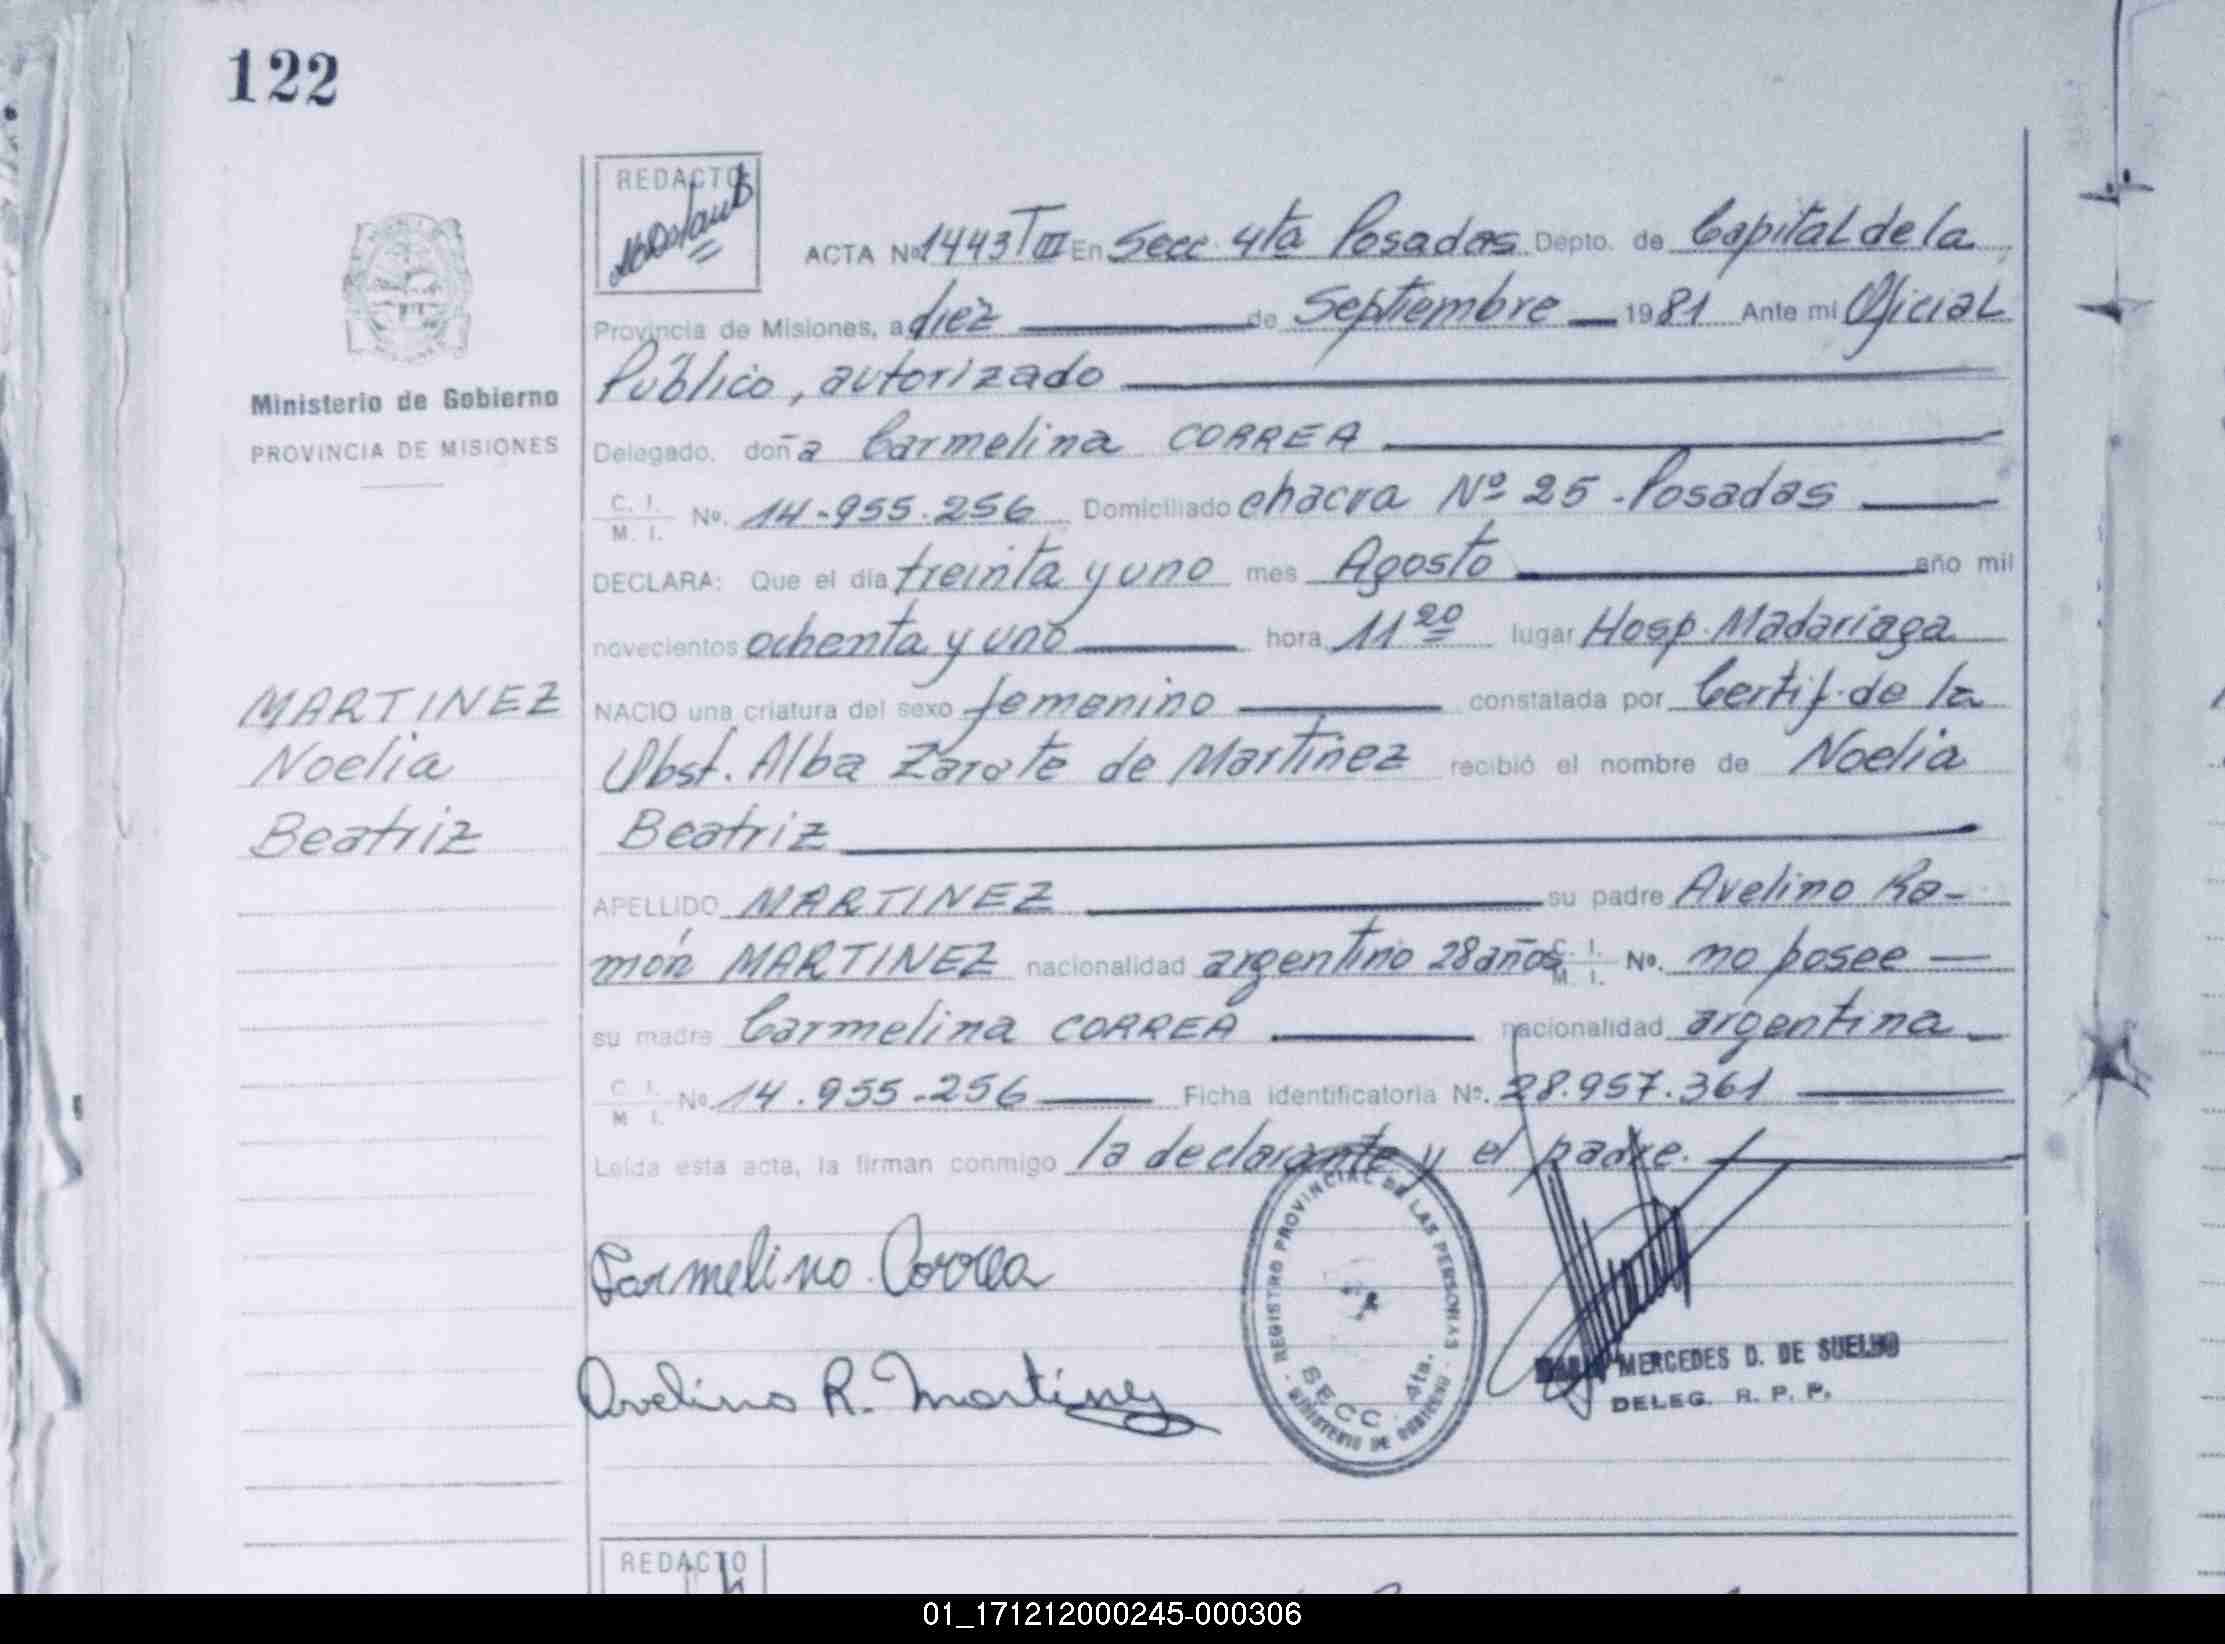 122
REDACTO
ACTA Nº 1443 T III En Secc. 4ta Posadas Depto. de Capital de la
Provincia de Misiones, a diez de Septiembre 1981 Ante mi Oficial
Público, autorizado
Ministerio de Gobierno
PROVINCIA DE MISIONES
Delegado, doña Carmelina CORREA
C. I. M. I. Nº. 14.955.256 Domiciliado chacra Nº 25 - Posadas
DECLARA: Que el día treinta y uno mes Agosto año mil
novecientos ochenta y uno hora 11 20 lugar Hosp. Madariaga
MARTINEZ
Noelia
Beatriz
NACIO una criatura del sexo femenino constatada por Certif. de la
Obst. Alba Zarate de Martinez recibió el nombre de Noelia
Beatriz
APELLIDO MARTINEZ su padre Avelino Ra-
món MARTINEZ nacionalidad argentino 28 años C. I. M. I. Nº. no posee
su madre Carmelina CORREA nacionalidad argentina
C. I. M. I. Nº. 14.955.256 Ficha identificatoria Nº. 28.957.361
Leída esta acta, la firman conmigo la declarante y el padre.
Carmelina Correa
Avelino R. Martinez
REGISTRO PROVINCIAL DE LAS PERSONAS
SECC. 4ta.
MINISTERIO DE GOBIERNO
MERCEDES D. DE SUELHO
DELEG. R. P. P.
REDACTO
01_171212000245-000306